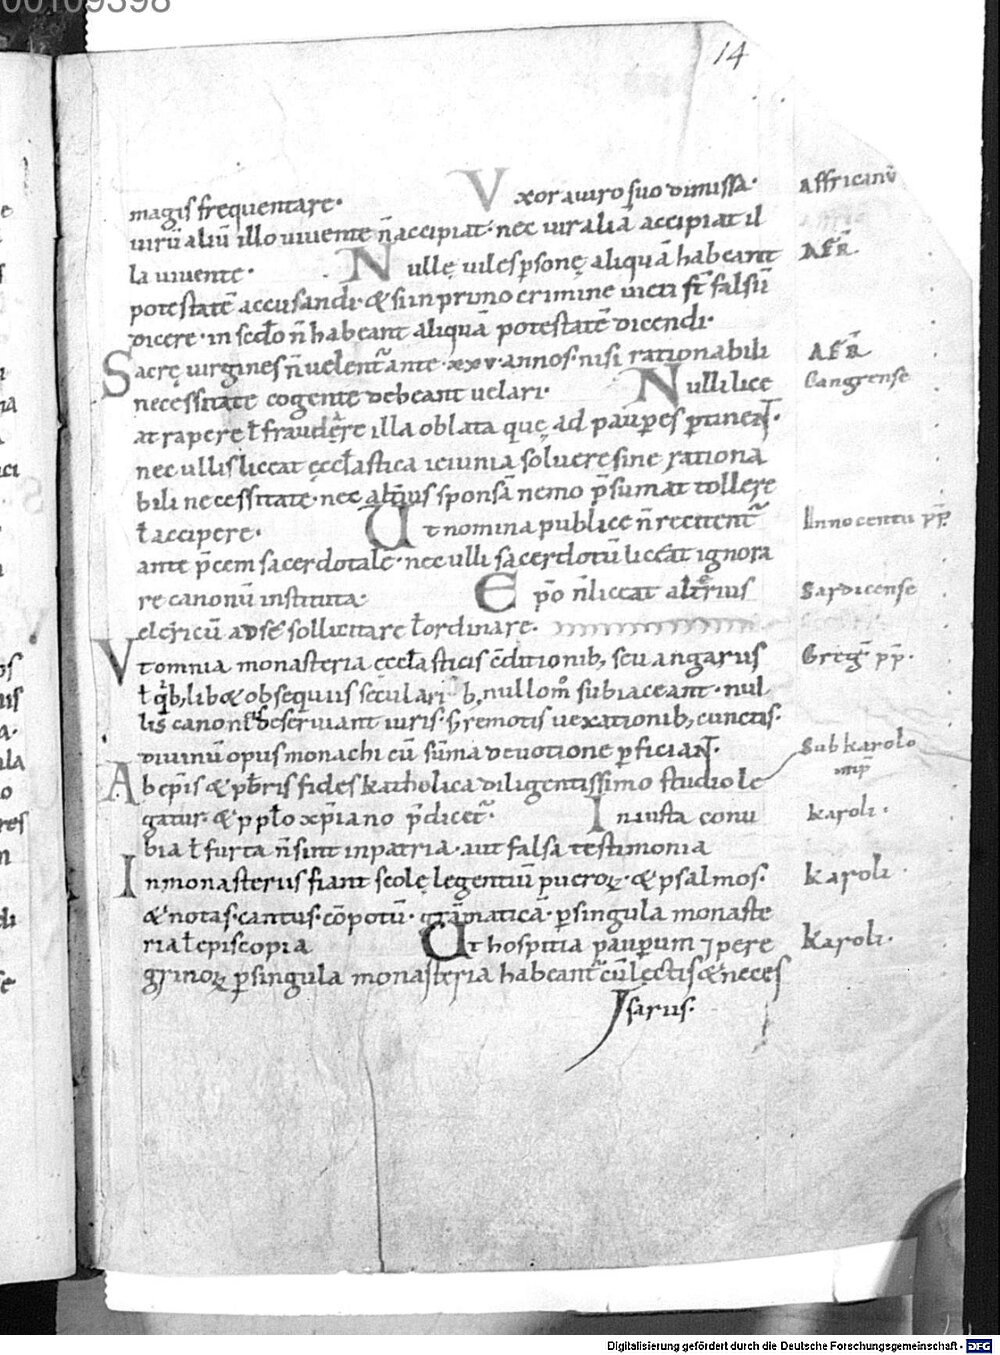 00109398
14
magis frequentare· Vxor a uiro suo dimissa· Affricanū
uirū aliū illo uiuente n̄ accipiat· nec uir aliā accipiat il
la uiuente· Nullę uiles ꝑsonę aliquā habeant AFR̄
potestatē accusandi· & si in primo crimine uicti fr̄t falsū
dicere· in sec̄do n̄ habeant aliquā potestatē dicendi·
Sacrę uirgines n̄ uelent᷑ ante ·xxv· annos· nisi rationabili AFR̄
necessitate cogente debeant uelari· Nulli lice Gangrense
at rapere ł fraudare illa oblata quę ad pauꝑes ꝑtinent·
nec ullis liceat ęccl̄astica ieiunia soluere sine rationa
bili necessitate· nec alt̄ius sponsā nemo p̄sumat tollere
ł accipere· Ut nomina publice n̄ recitent᷑ Innocentii pp̄
ante p̄cem sacerdotale· nec ulli sacerdotū liceat ignora
re canonū instituta· Ep̄o n̄ liceat alterius Sardicense
clericū ad se sollicitare ł ordinare·
Vt omnia monasteria ęccl̄asticis c̄ditionib; seu angarus Greg̅ pp̄·
ł q̇b;lib& obsequiis secularib; nullom̊ subiaceant· nul
lis canon̄ deseruiant iuris· s; remotis uexationib; cunctis·
diuinū opus monachi cū sūma deuotione ꝑficiant· Sub karolo
imp̄
Ab ep̄is & pb̄ris fides katholica diligentissimo studio le
gatur· & pplō xp̄iano p̄dicet᷑· Iniusta conu karoli·
bia ł furta n̄ sint in patria· aut falsa testimonia
In monasteriis fiant scolę legentiū pueroꝝ· & psalmos· karoli·
& notas· cantus· cōpotū· grāmaticā· ꝑ singula monaste
ria ł episcopia Ut hospitia pauꝑum ⁊ pere karoli·
grinoꝝ ꝑ singula monasteria habeant᷑ cū lectis & neces
sariis·
Digitalisierung gefördert durch die Deutsche Forschungsgemeinschaft - DFG